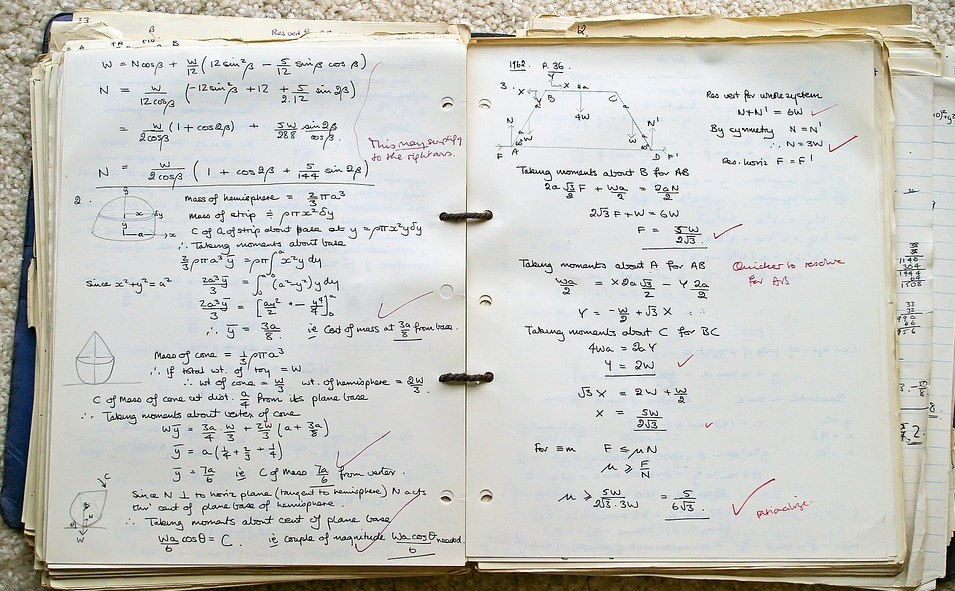 33
W = Ncosβ + W/12 (12 sin²β − 5/12 sinβ cosβ)
N = W/12cosβ (−12 sin²β + 12 + 5/2.12 sin2β)
= W/2cosβ (1 + cos2β) + 5W/288 sin2β/cosβ.
This may simplify
to the right ans.
N = W/2cosβ (1 + cos2β + 5/144 sin2β)
2.
Mass of hemisphere = 2/3 πa³
Mass of strip = ρπx²δy
C of G of strip about base at y = ρπx²yδy
∴ Taking moments about base
2/3 ρπa³ȳ = ρπ∫x²y dy
Since x²+y²=a² 2a³ȳ/3 = ∫(a²−y²)y dy
2a³ȳ/3 = [ay²/2 − y⁴/4]
∴ ȳ = 3a/8. ie Cent of mass at 3a/8 from base.
Mass of cone = 1/3 ρπa³
∴ If total wt. of toy = W
∴ wt of cone = W/3 wt. of hemisphere = 2W/3.
C of Mass of cone at dist. a/4 from its plane base
∴ Taking moments about vertex of cone
Wȳ = 3a/4 . W/3 + 2W/3 (a + 3a/8)
ȳ = a(1/4 + 2/3 + 1/4)
ȳ = 7a/6 ie C of mass 7a/6 from vertex.
Since N ⊥ to horiz plane (tangent to hemisphere) N acts
thro' cent of plane base of hemisphere.
∴ Taking moments about cent of plane base
Wa/6 cosθ = C. ie couple of magnitude Wa cosθ/6 needed.
12.
1962 P.36
3.
Y X 2a
X B C
4W
N N'
W W
F A D F'
Res vert for whole system
N+N' = 6W
By symmetry N = N'
∴ N = 3W
Res. horiz F = F'
Taking moments about B for AB
2a√3/2 F + Wa/2 = 2aN/2
2√3F + W = 6W
F = 5W/2√3.
Taking moments about A for AB
Quicker to resolve
for AB
Wa/2 = X 2a√3/2 − Y 2a/2
Y = −W/2 + √3 X
Taking moments about C for BC
4Wa = 2aY
Y = 2W
√3 X = 2W + W/2
X = 5W/2√3
For ≡m F ≤ μN
μ ≥ F/N
μ ≥ 5W/2√3.3W = 5/6√3.
rationalize.